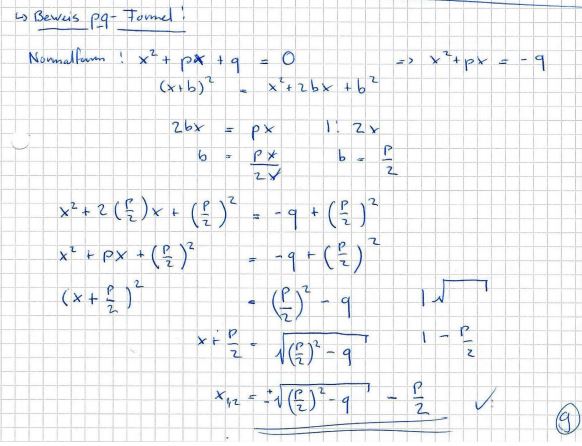 ↳ Beweis pq-Formel!
Normalform: x² + px + q = 0 => x² + px = -q
(x+b)² = x² + 2bx + b²
2bx = px |: 2x
b = px/2x b = p/2
x² + 2(p/2)x + (p/2)² = -q + (p/2)²
x² + px + (p/2)² = -q + (p/2)²
(x + p/2)² = (p/2)² - q |√
x + p/2 = √((p/2)² - q) | - p/2
x₁,₂ = ±√((p/2)² - q) - p/2 ✓
9